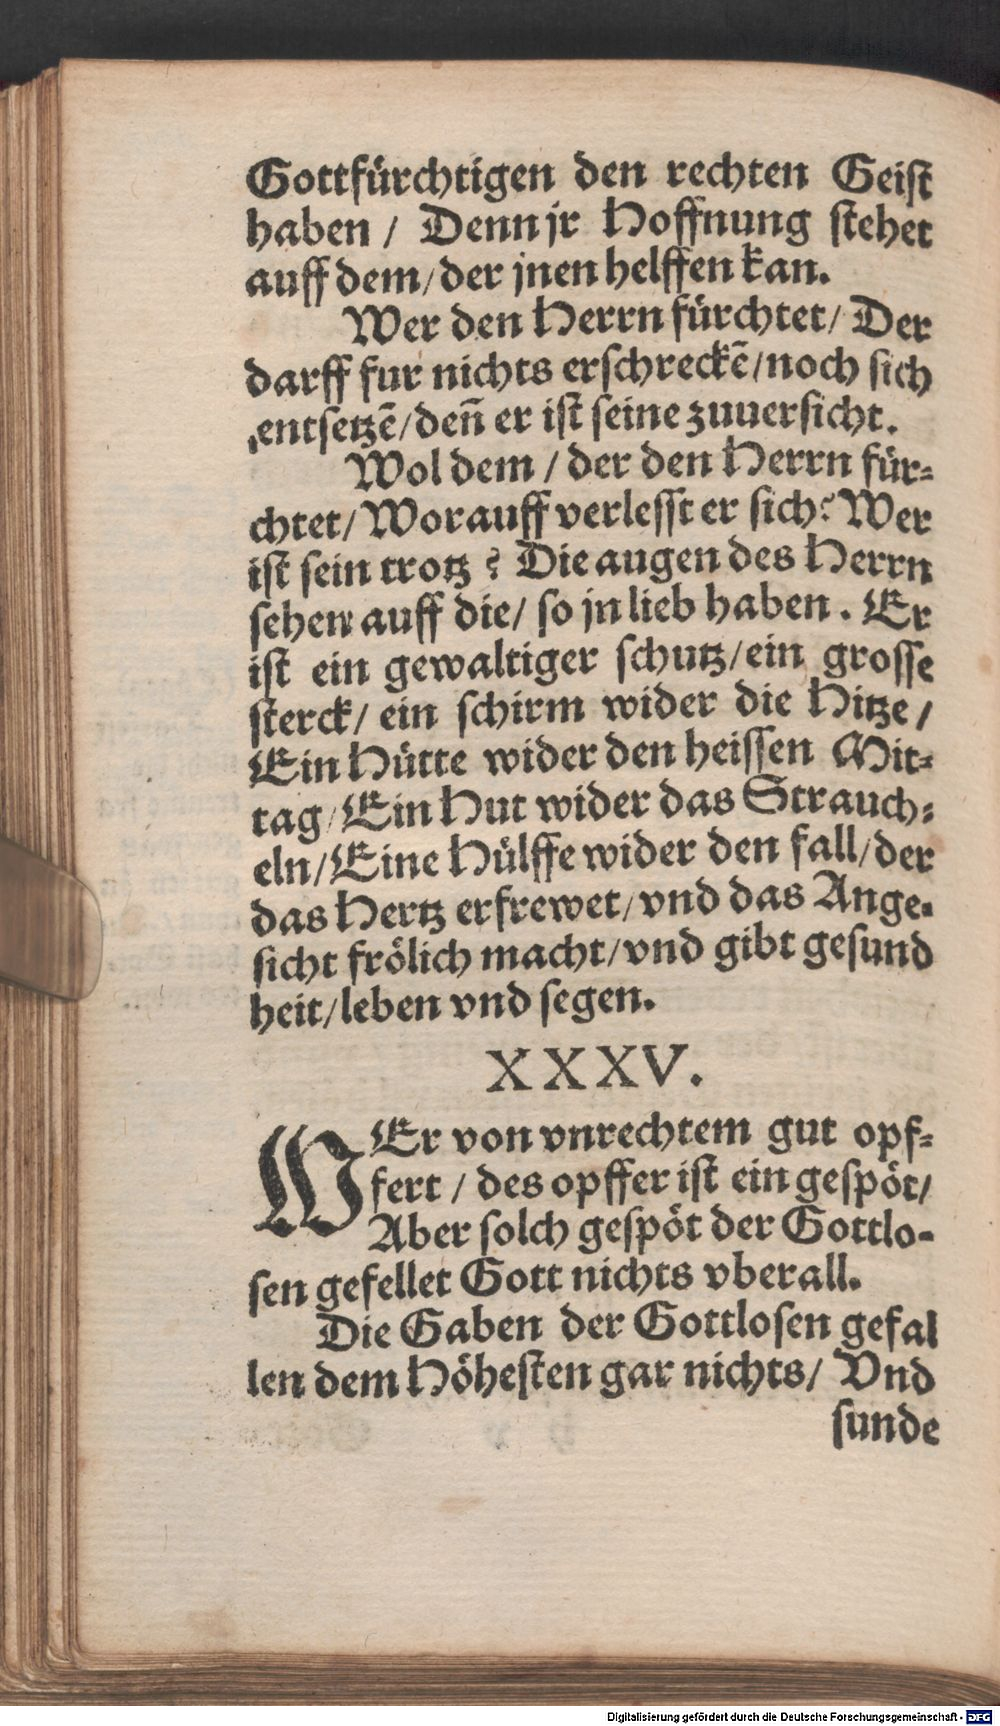 Gottfürchtigen den rechten Geiſt
haben / Denn jr Hoffnung ſtehet
auff dem/der jnen helffen kan.
Wer den Herrn fürchtet/ Der
darff fur nichts erſchreckē/noch ſich
entſetzē/deñ er iſt ſeine zuuerſicht.
Wol dem / der den Herrn für⸗
chtet/ Worauff verleſſt er ſich? Wer
iſt ſein trotz? Die augen des Herrn
ſehen auff die/ ſo jn lieb haben. Er
iſt ein gewaltiger ſchutz/ein groſſe
ſterck/ ein ſchirm wider die Hitze/
Ein Hütte wider den heiſſen Mit⸗
tag/Ein Hut wider das Strauch⸗
eln/Eine Hülffe wider den fall/der
das Hertz erfrewet/vnd das Ange⸗
ſicht frölich macht/vnd gibt geſund
heit/leben vnd ſegen.
XXXV.
WEr von vnrechtem gut opf⸗
fert / des opffer iſt ein geſpöt/
Aber ſolch geſpöt der Gottlo⸗
ſen gefellet Gott nichts vberall.
Die Gaben der Gottloſen gefal
len dem Höheſten gar nichts/ Vnd
ſunde
Digitalisierung gefördert durch die Deutsche Forschungsgemeinschaft - DFG